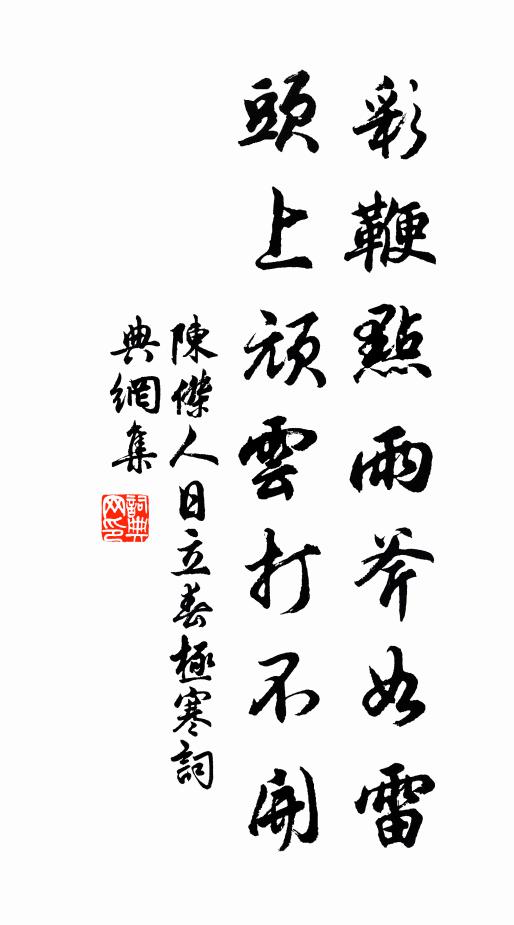 彩鞭點雨斧如雷
頭上頑雲打不開
陳傑人日立春極寒詞
典網集
詞典網印